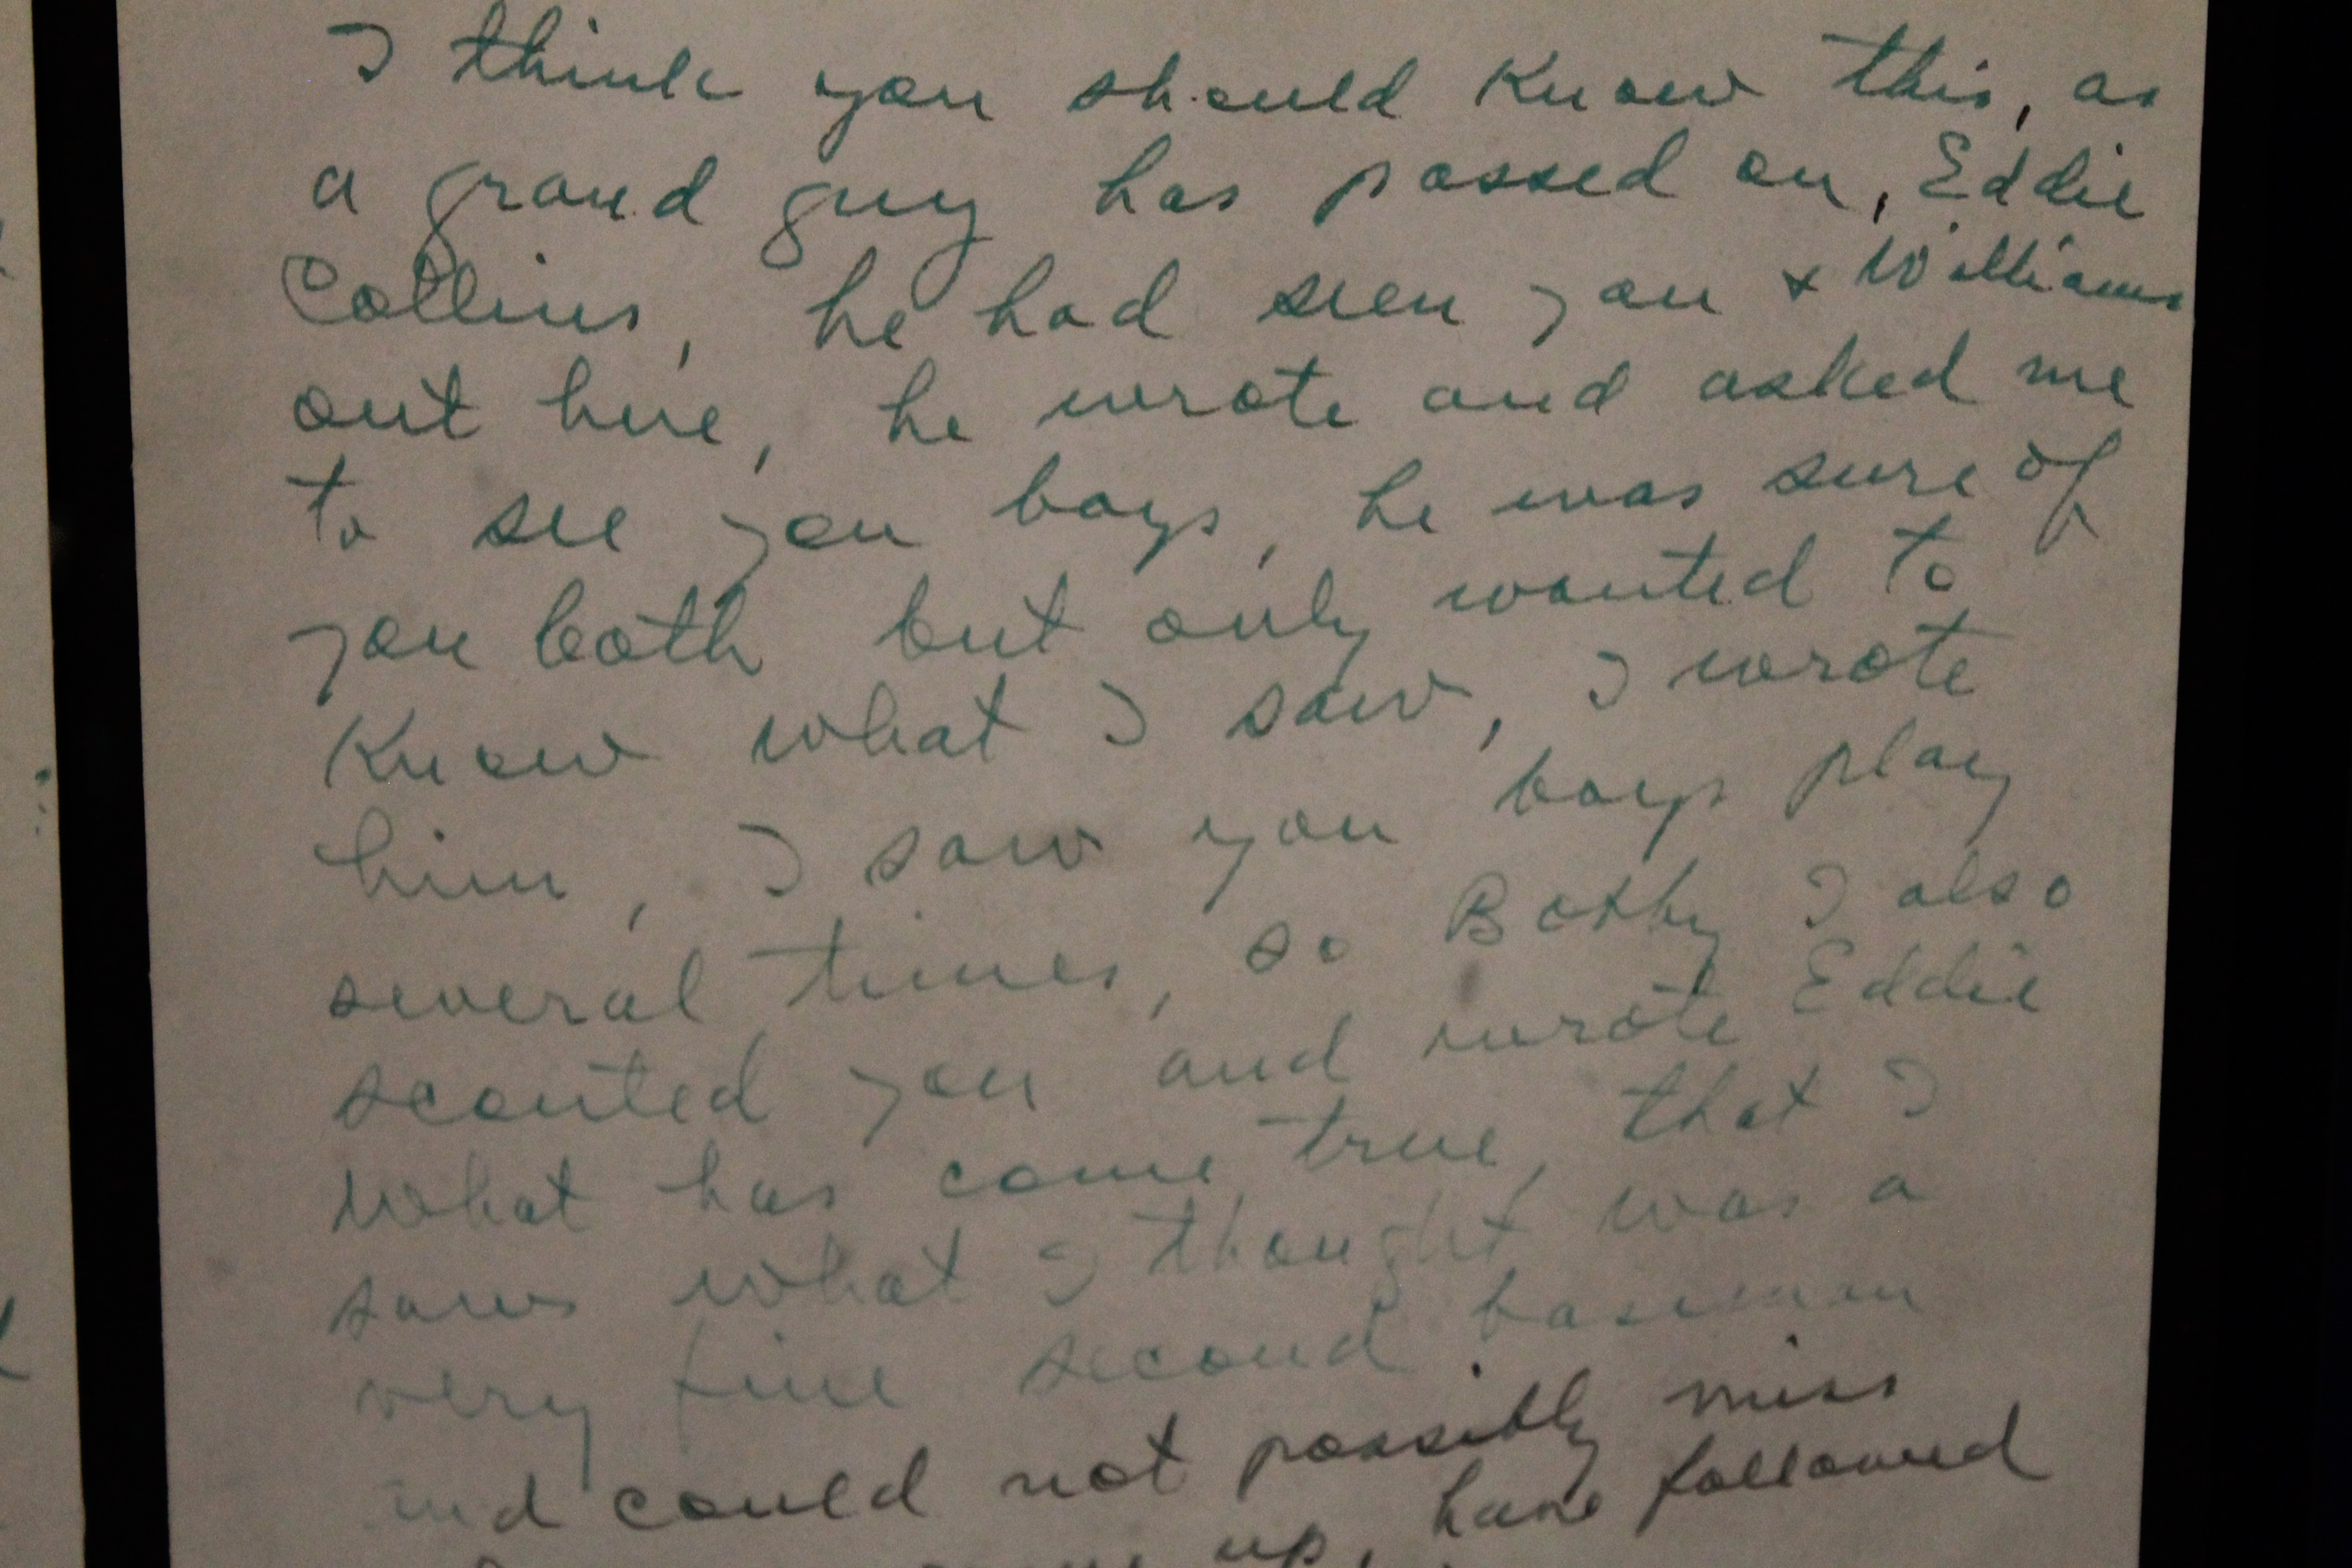 I think you should know this, as
a grand guy has passed on, Eddie
Collins, he had seen you & Williams
out here, he wrote and asked me
to see you boys, he was sure of
you both but only wanted to
know what I saw, I wrote
him, I saw you boys play
several times, so Bobby I also
scouted you and wrote Eddie
what has come true, that I
saw what I thought was a
very fine second baseman
and could not possibly miss
up, have followed